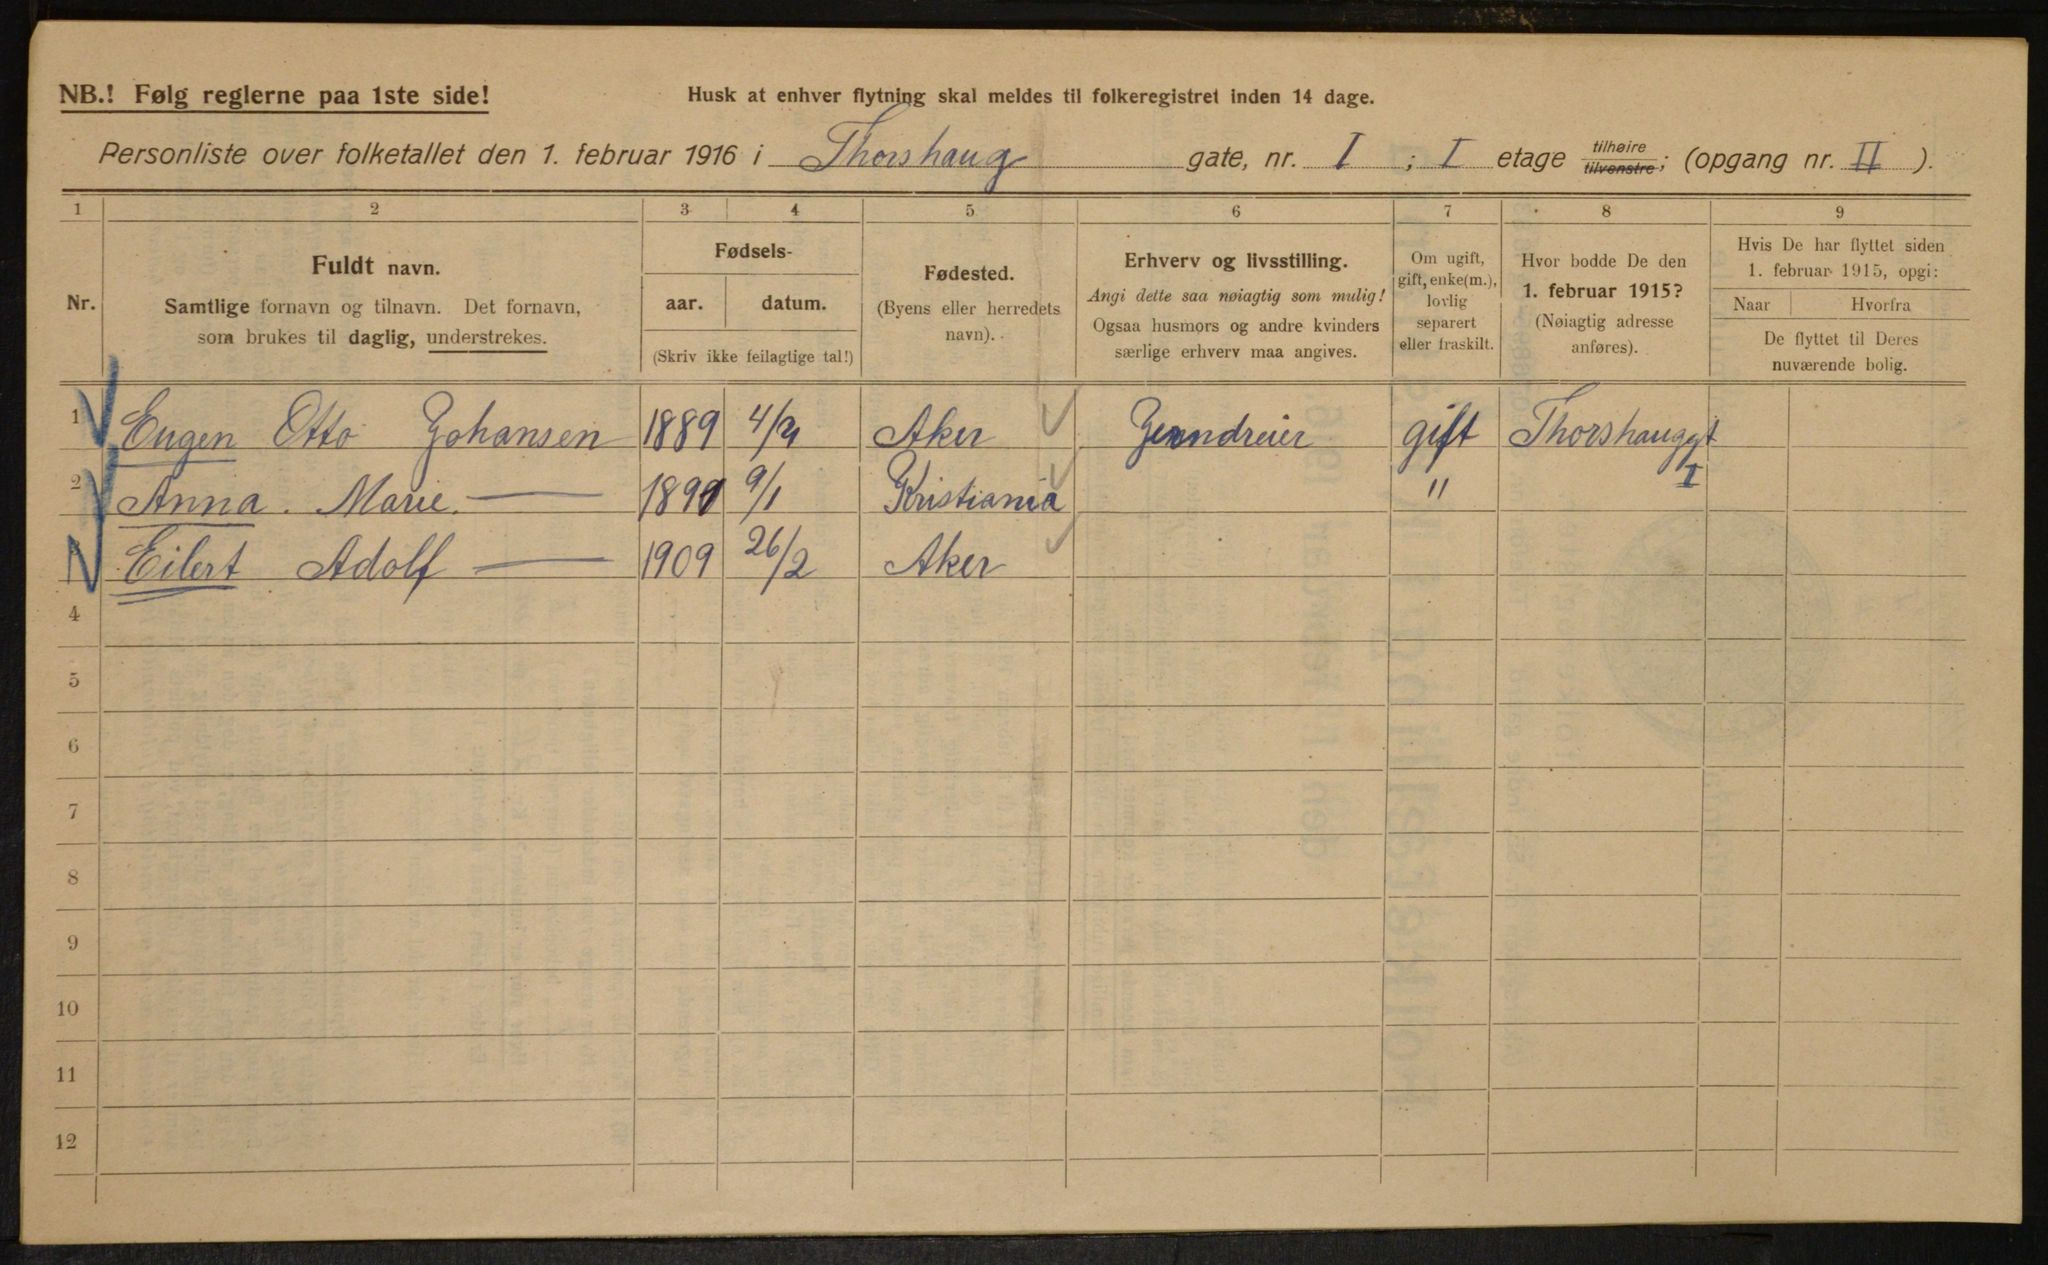 NB.! Følg reglerne paa 1ste side!
Husk at enhver flytning skal meldes til folkeregistret inden 14 dage.
Personliste over folketallet den 1. februar 1916 i Thorshaug gate, nr. I ; I etage tilhøire tilvenstre; (opgang nr. II ).
1 2 3 4 5 6 7 8 9
Nr.
Fuldt navn.
Samtlige fornavn og tilnavn. Det fornavn,
som brukes til daglig, understrekes.
Fødsels-
aar. datum.
(Skriv ikke feilagtige tal!)
Fødested.
(Byens eller herredets
navn).
Erhverv og livsstilling.
Angi dette saa nøiagtig som mulig!
Ogsaa husmors og andre kvinders
særlige erhverv maa angives.
Om ugift,
gift, enke(m.),
lovlig
separert
eller fraskilt.
Hvor bodde De den
1. februar 1915?
(Nøiagtig adresse
anføres).
Hvis De har flyttet siden
1. februar 1915, opgi:
Naar Hvorfra
De flyttet til Deres
nuværende bolig.
1 Eugen Otto Johansen 1889 Aker gift Thorshauggt
I
2 Anna. Marie. — 9/1 Kristiania "
Eilert Adolf — 1909 26/2 Aker
4
5
6
7
8
9
10
11
12